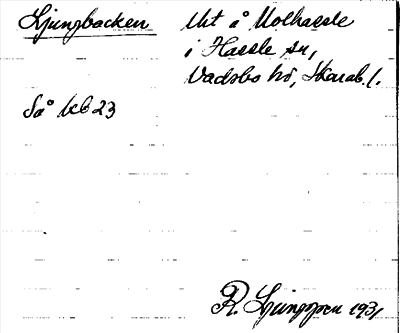 Ljungbacken
Utt å Molhassle
i Hassle sn,
Vadsbo hd, Skarab. l.
Så kb 23
R. Ljunggren 1931